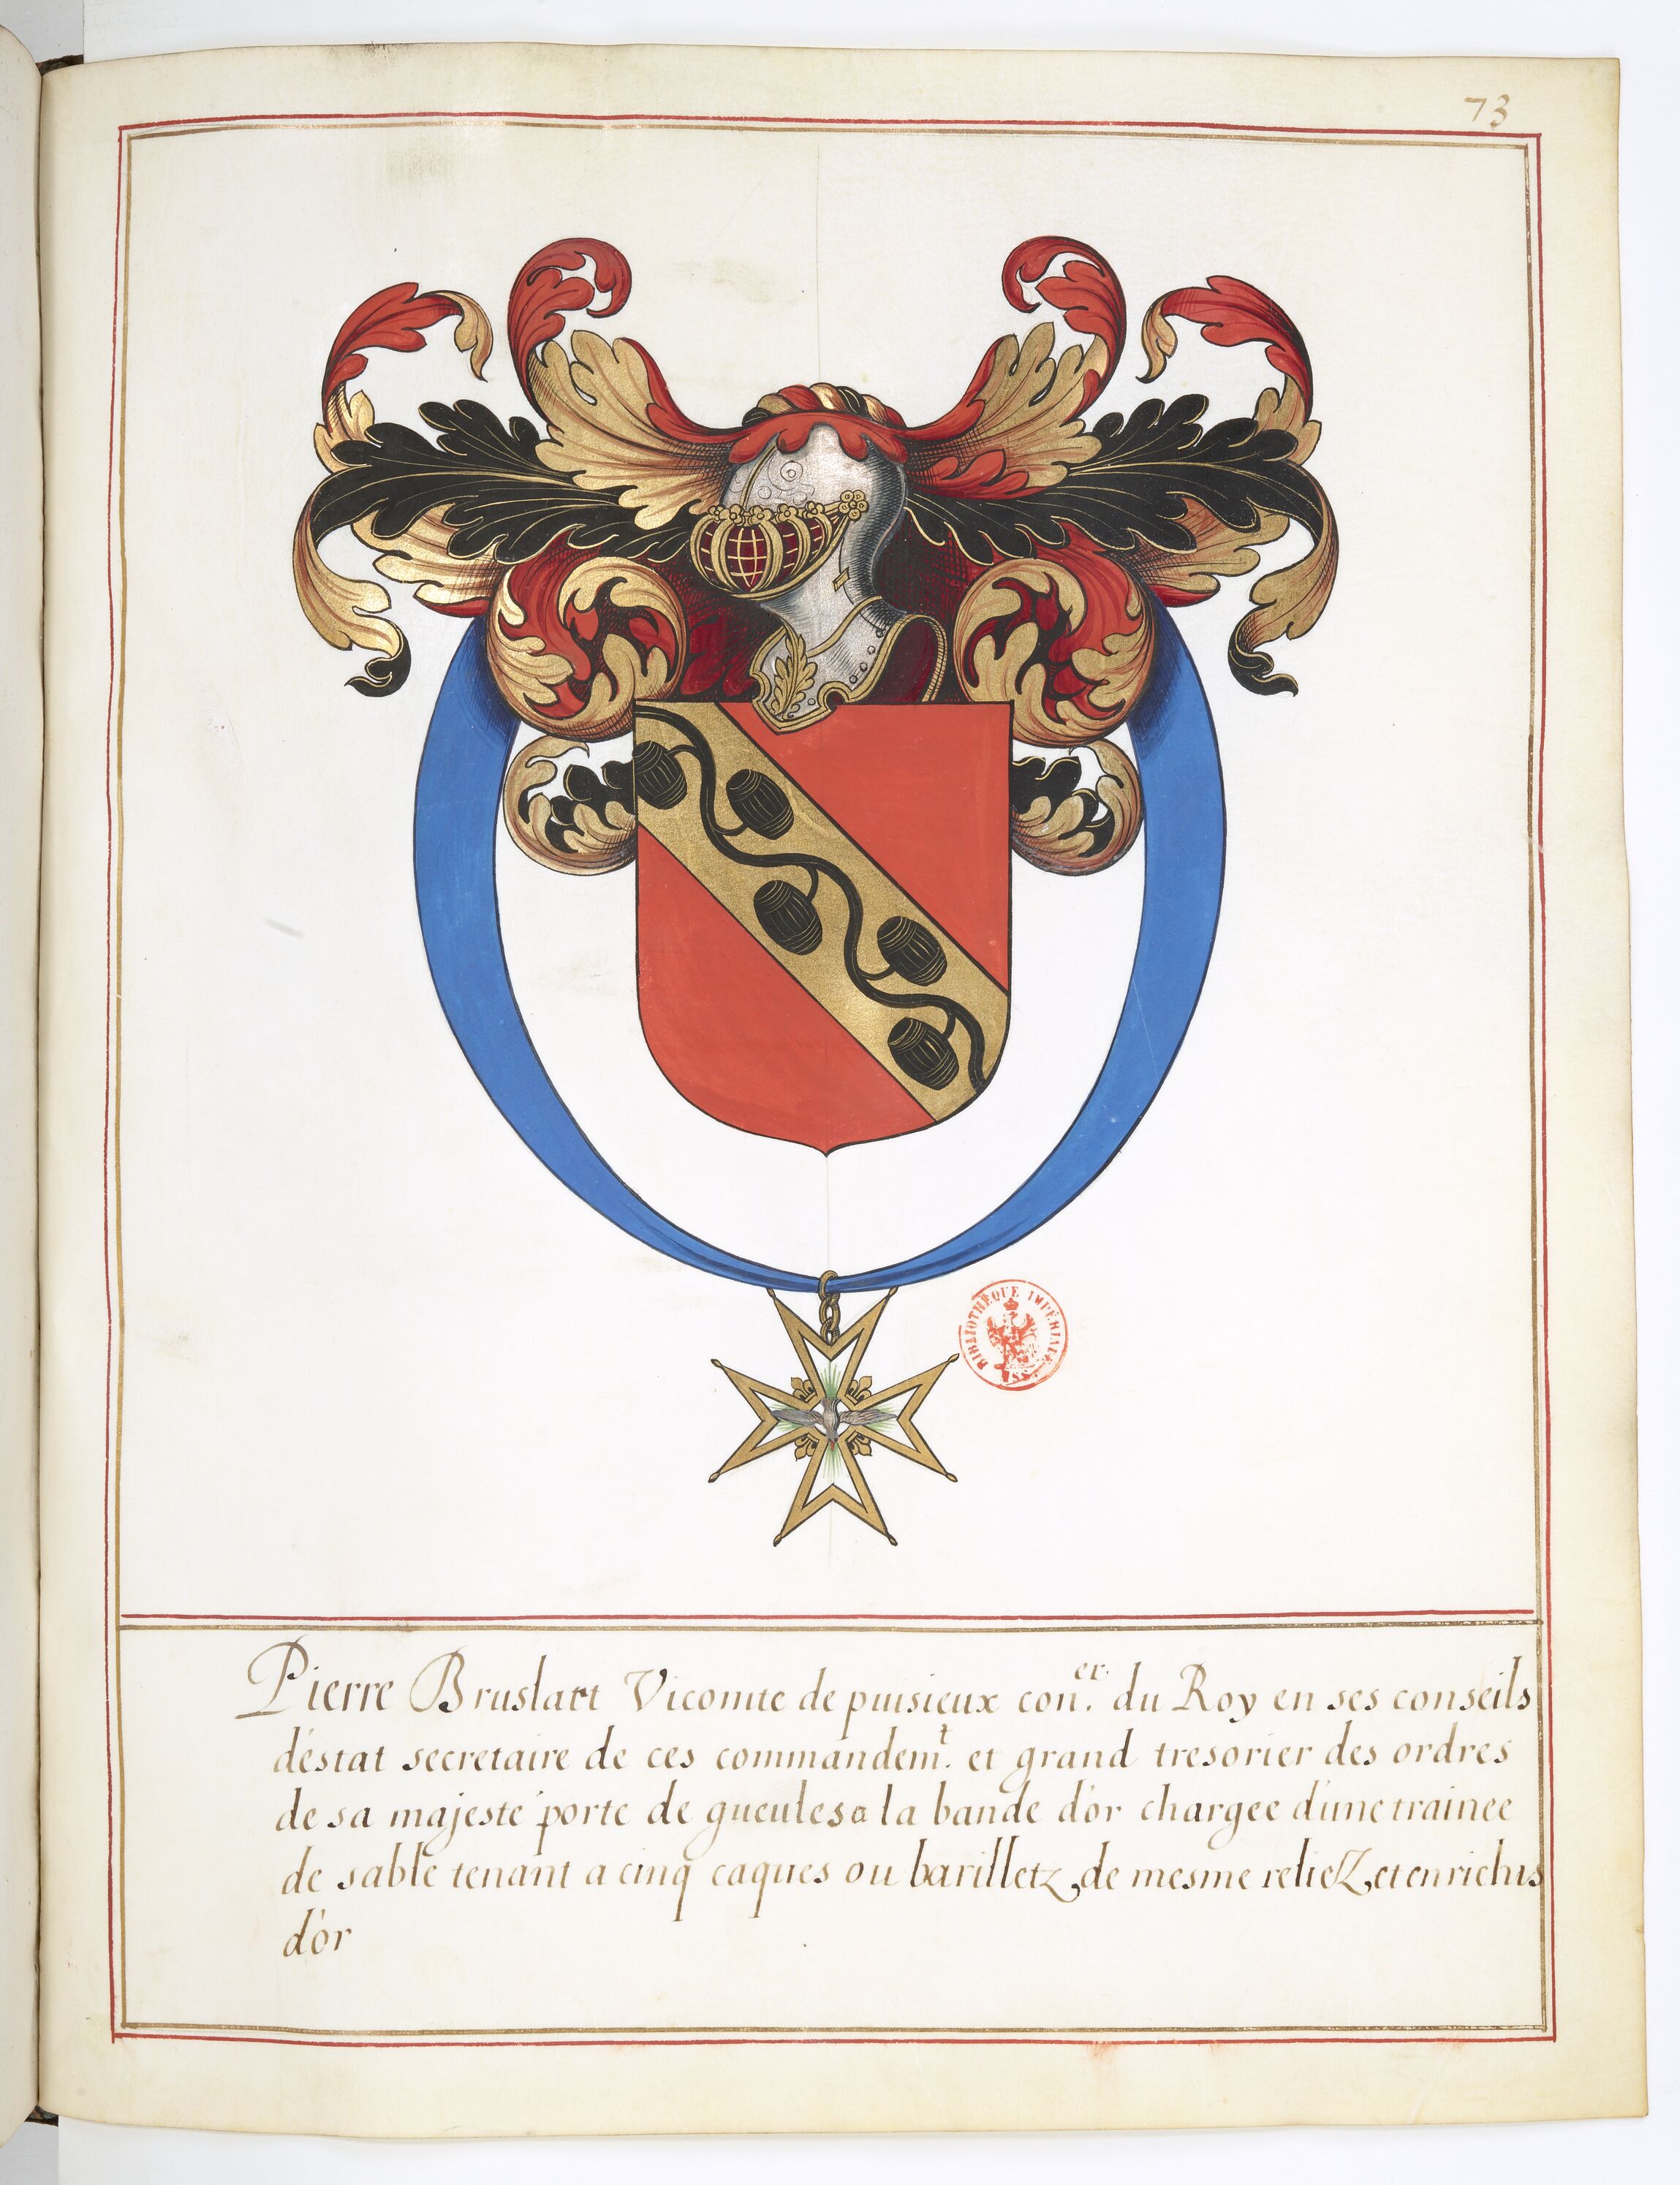 73
BIBLIOTHÈQUE IMPÉRIALE
Pierre Bruslart Vicomte de puisieux con.er du Roy en ses conseils
d'estat secretaire de ces commandem.t et grand tresorier des ordres
de sa majesté porte de gueules a la bande d'or chargee d'une trainee
de sable tenant a cinq caques ou barilletz de mesme reliez et enrichis
d'or